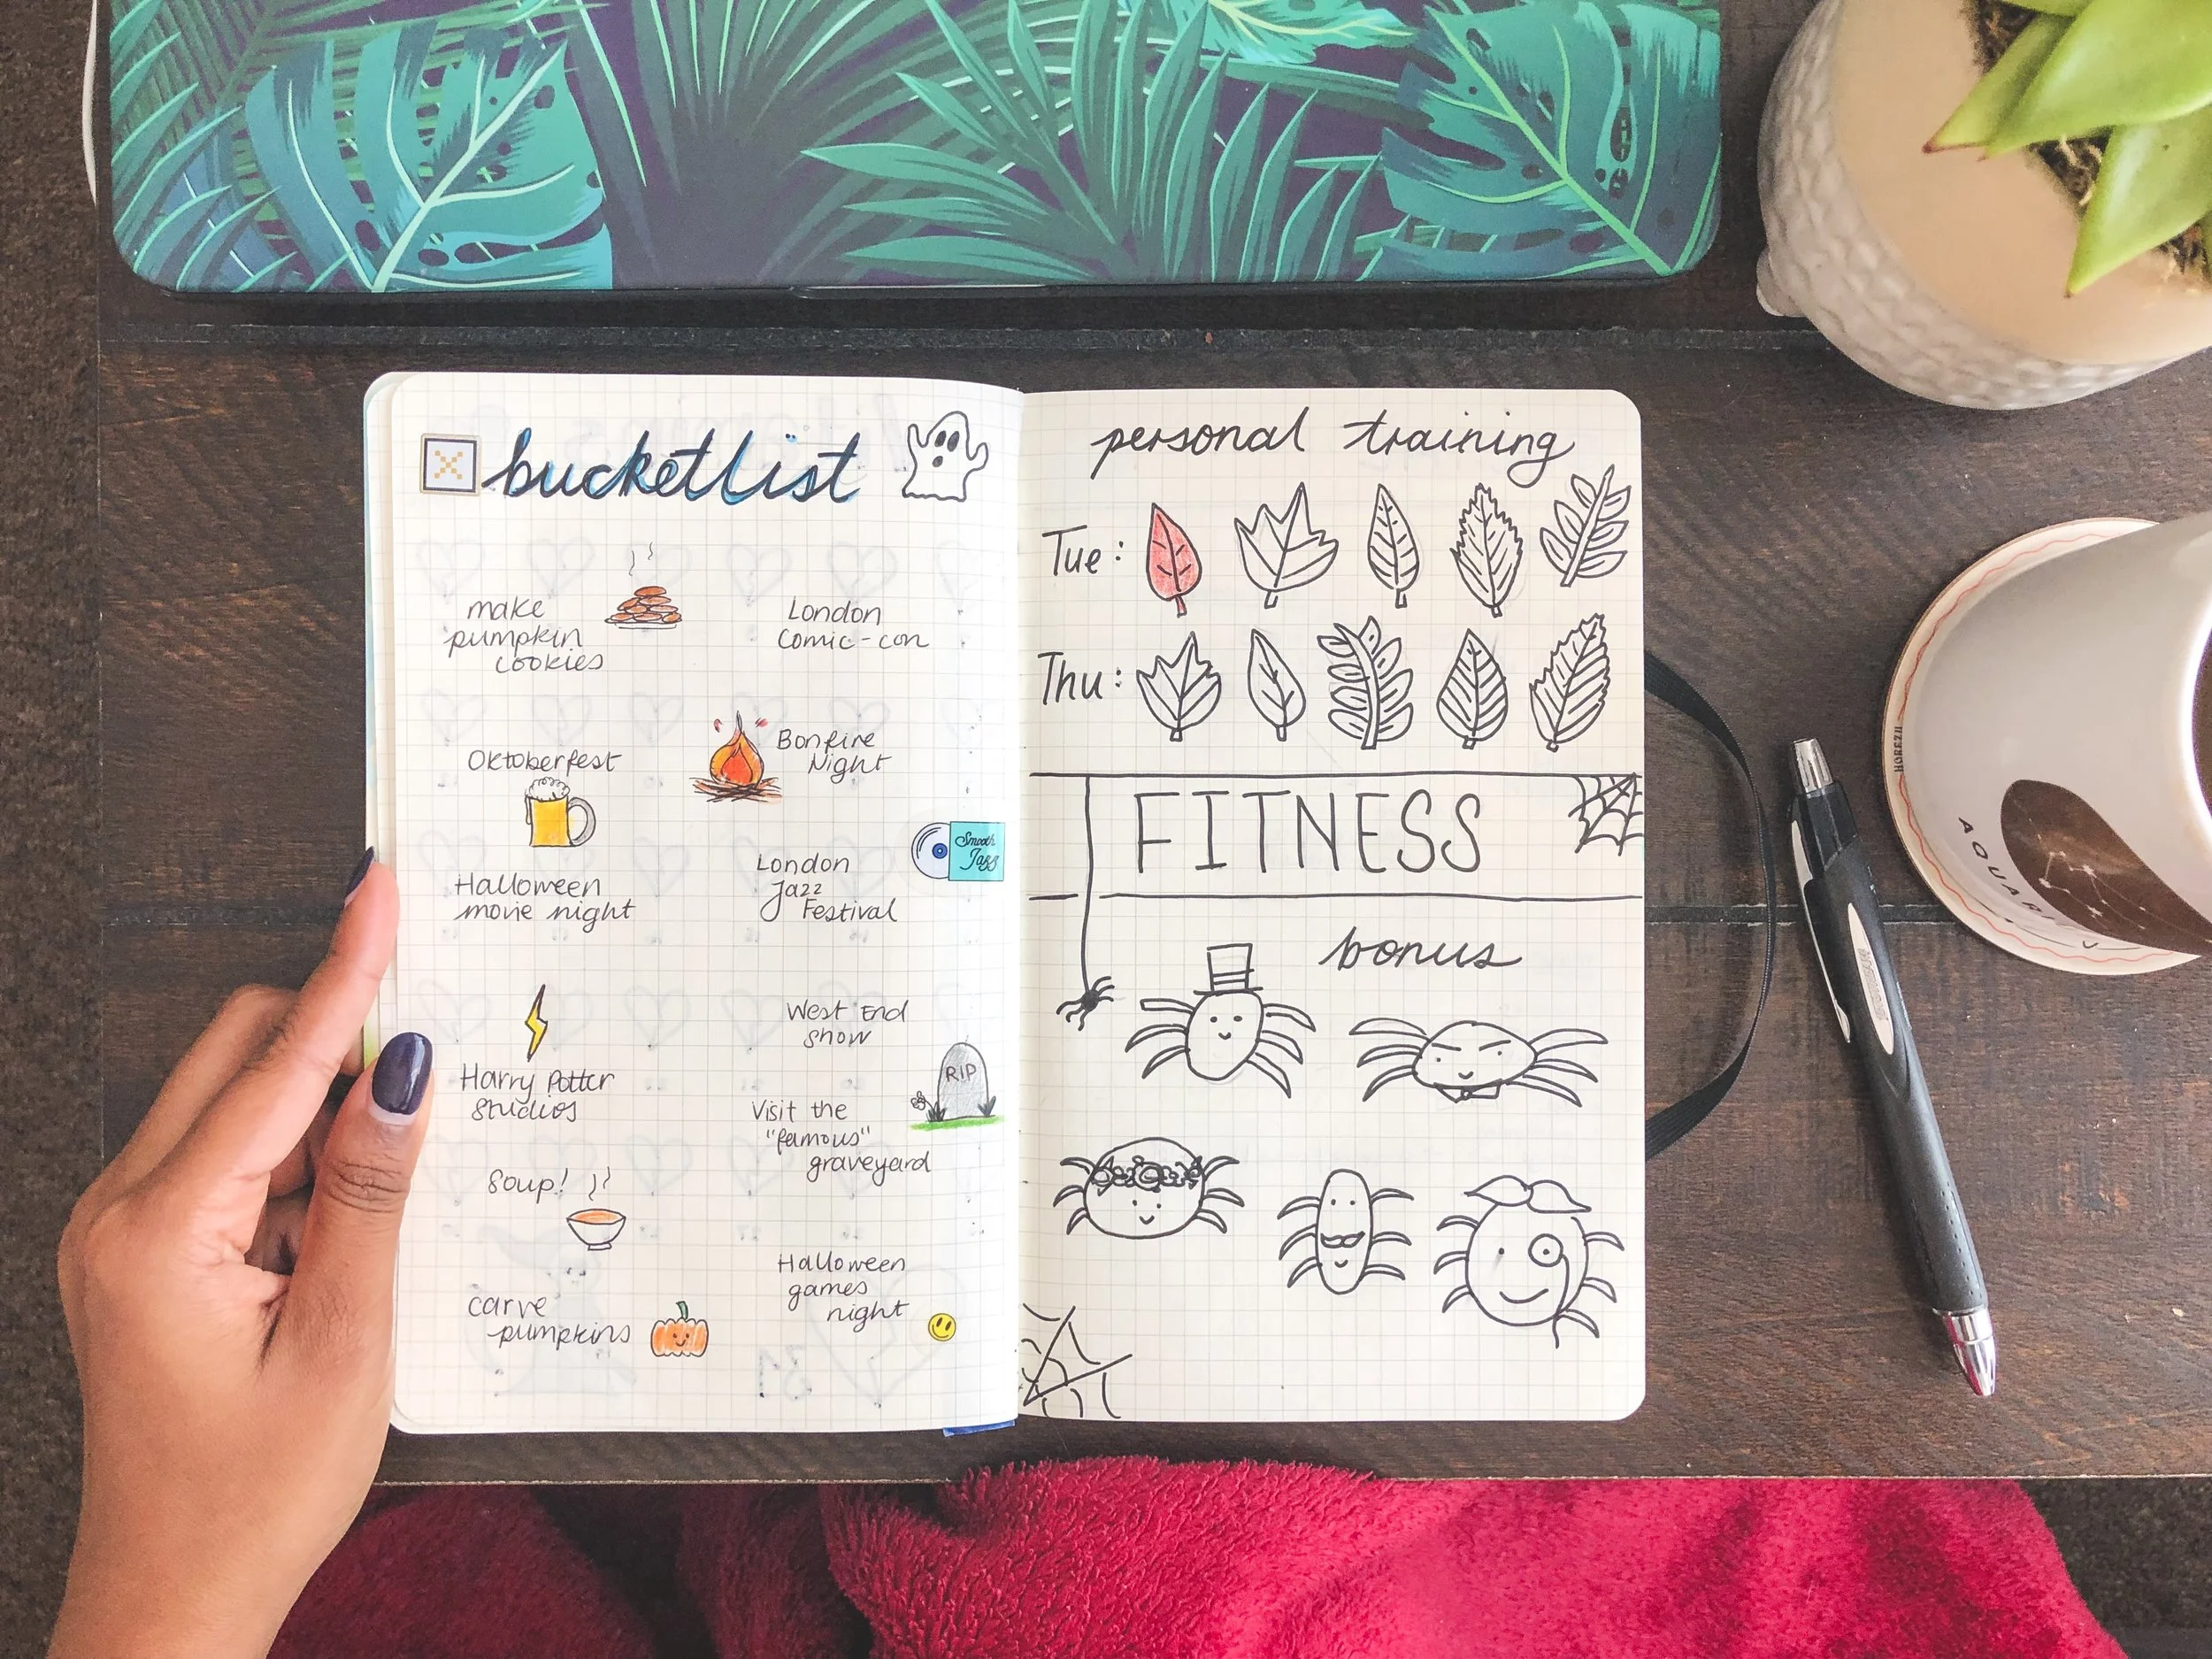 bucketlist
make
pumpkin
cookies
London
Comic-con
Oktoberfest
Bonfire
Night
Halloween
movie night
London
Jazz
Festival
Smooth
Jazz
Harry Potter
Studios
West End
show
RIP
Visit the
"famous"
graveyard
Soup!
carve
pumpkins
Halloween
games
night
31
personal training
Tue:
Thu:
FITNESS
bonus
HOREZU